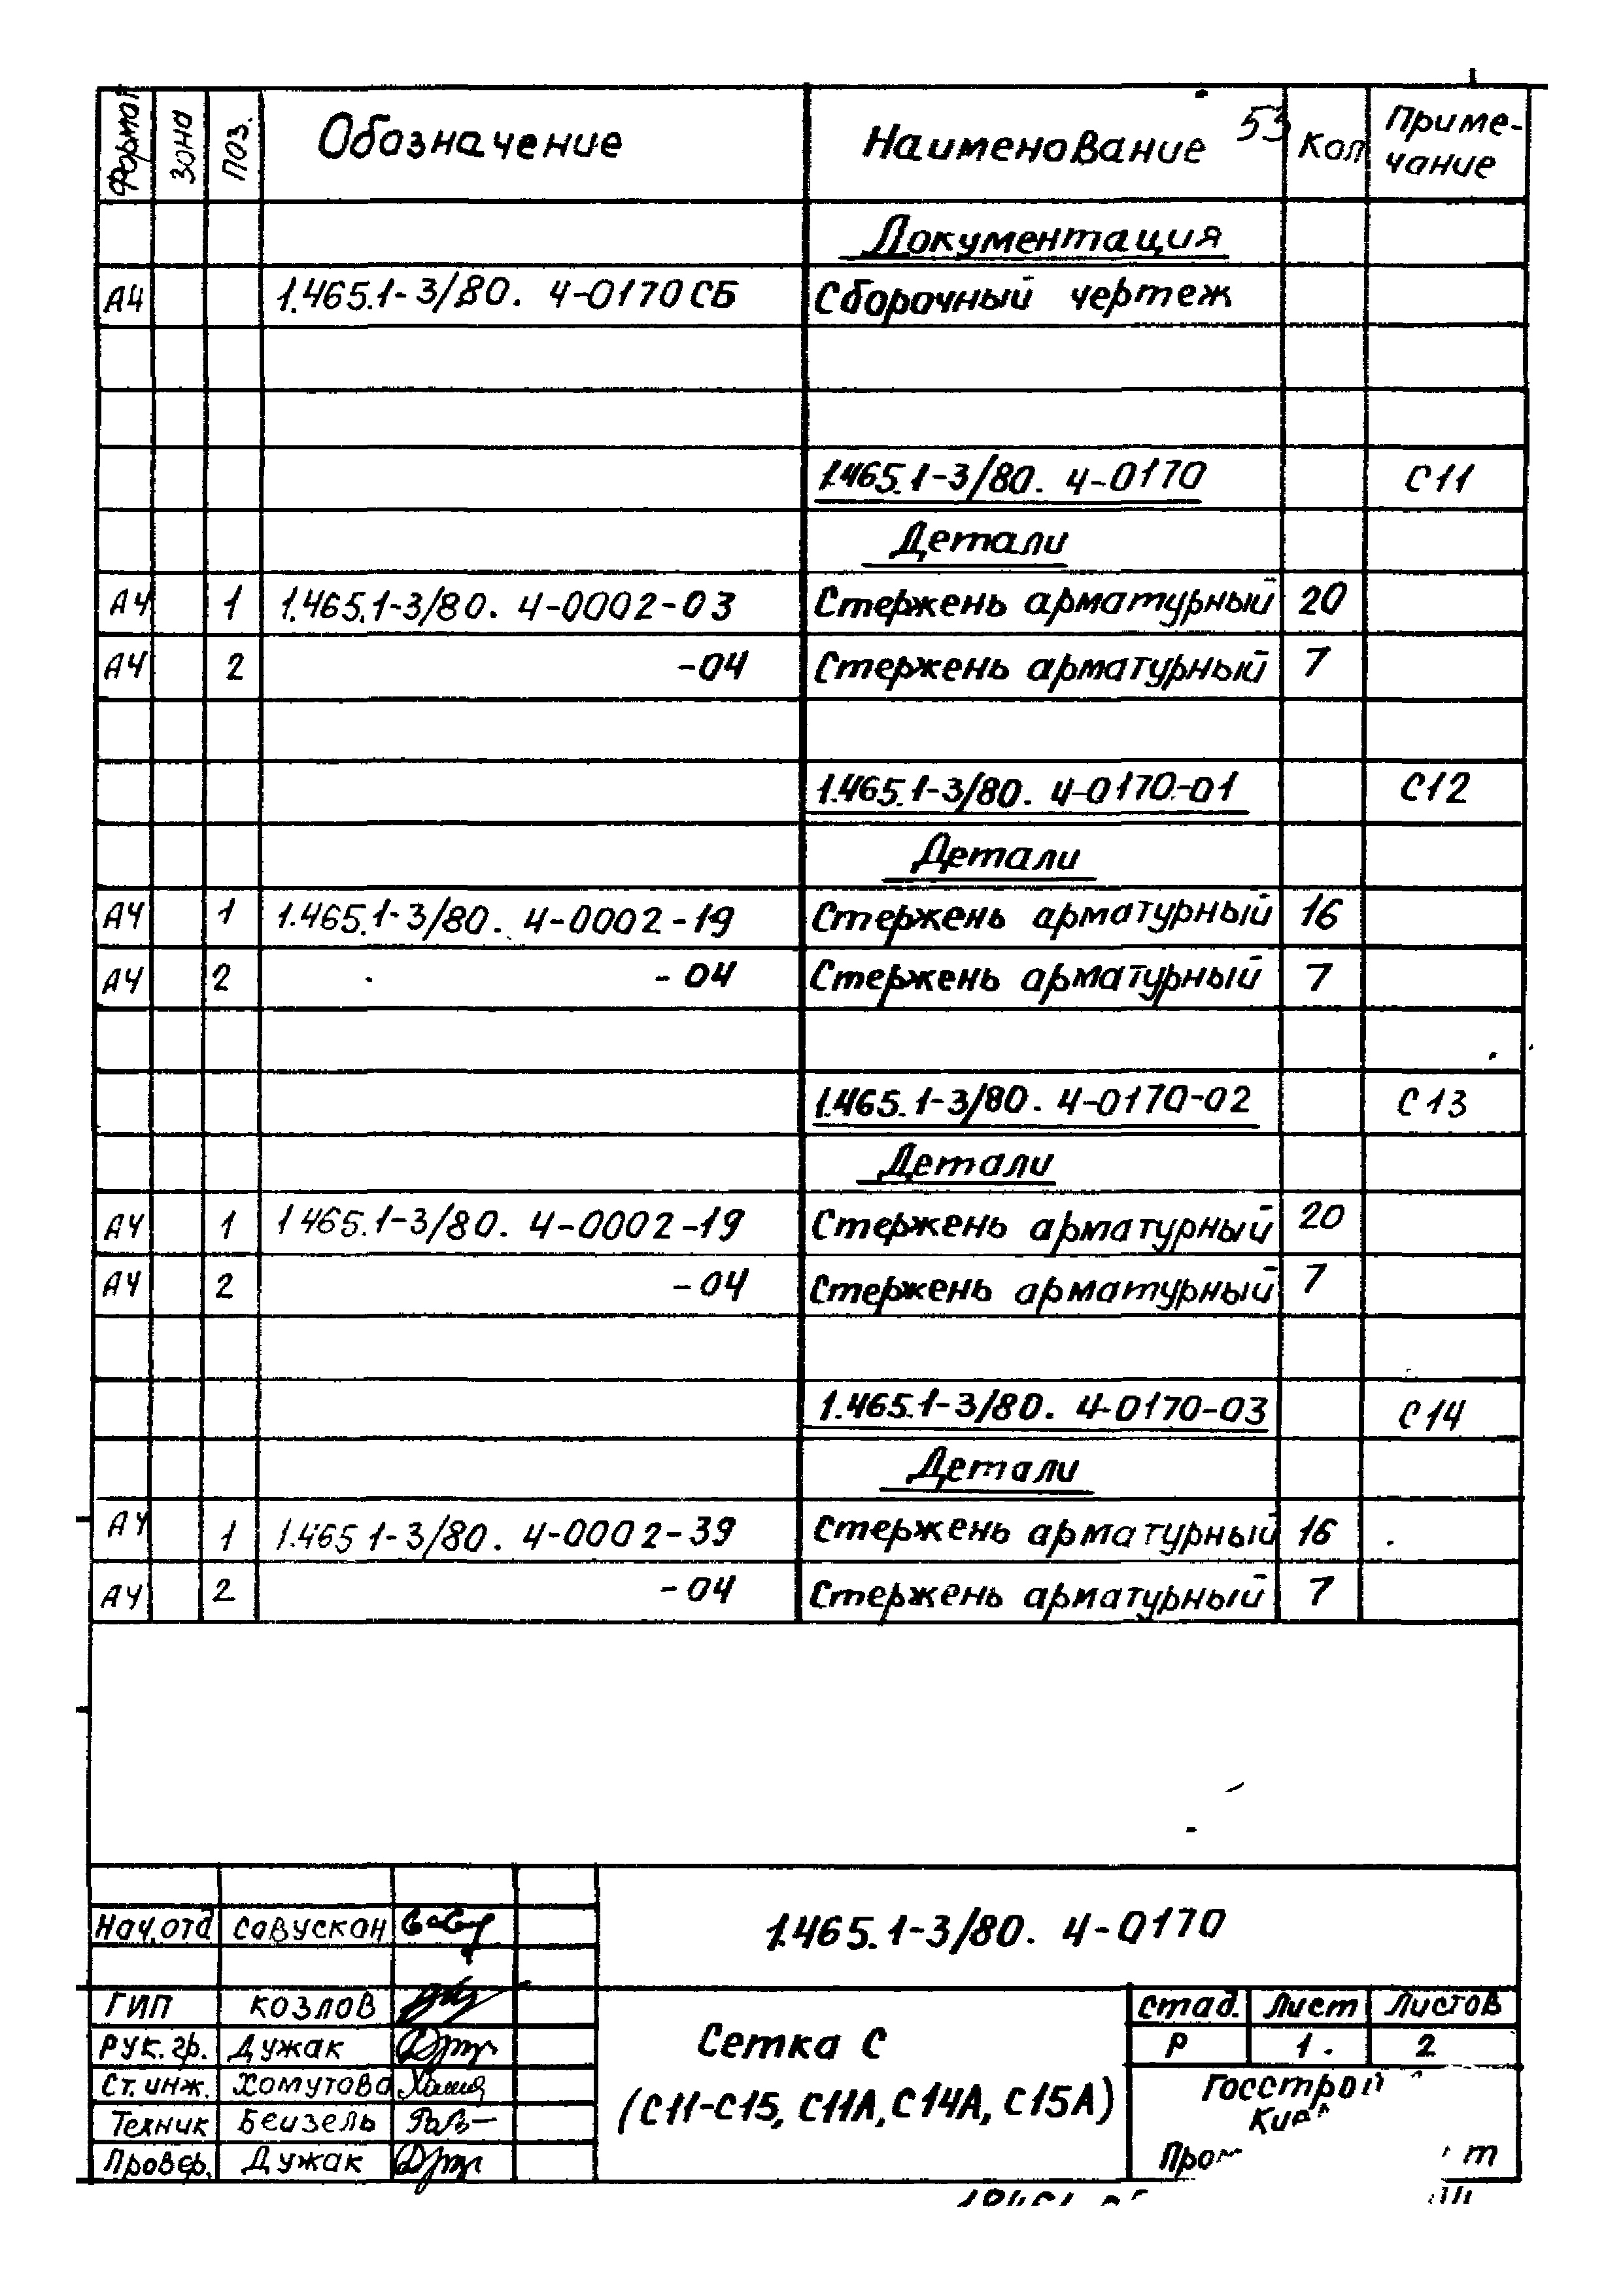 53
Формат Зона Поз. Обозначение Наименование Кол Приме-
чание
Документация
А4 1.465.1-3/80. 4-0170СБ Сборочный чертеж
1.465.1-3/80. 4-0170 С11
Детали
А4 1 1.465.1-3/80. 4-0002-03 Стержень арматурный 20
А4 2 -04 Стержень арматурный 7
1.465.1-3/80. 4-0170-01 С12
Детали
А4 1 1.465.1-3/80. 4-0002-19 Стержень арматурный 16
А4 2 -04 Стержень арматурный 7
1.465.1-3/80. 4-0170-02 С13
Детали
А4 1 1465.1-3/80. 4-0002-19 Стержень арматурный 20
А4 2 -04 Стержень арматурный 7
1.465.1-3/80. 4-0170-03 С14
Детали
А4 1 1.465 1-3/80. 4-0002-39 Стержень арматурный 16
А4 2 -04 Стержень арматурный 7
1.465.1-3/80. 4-0170
Нач.отд Савускан
ГИП Козлов
Рук.гр. Дужак
Ст.инж. Хомутова
Техник Беизель
Провер. Дужак
Сетка С
(С11-С15, С11А, С14А, С15А)
Стад. Лист Листов
Р 1. 2
Госстрой